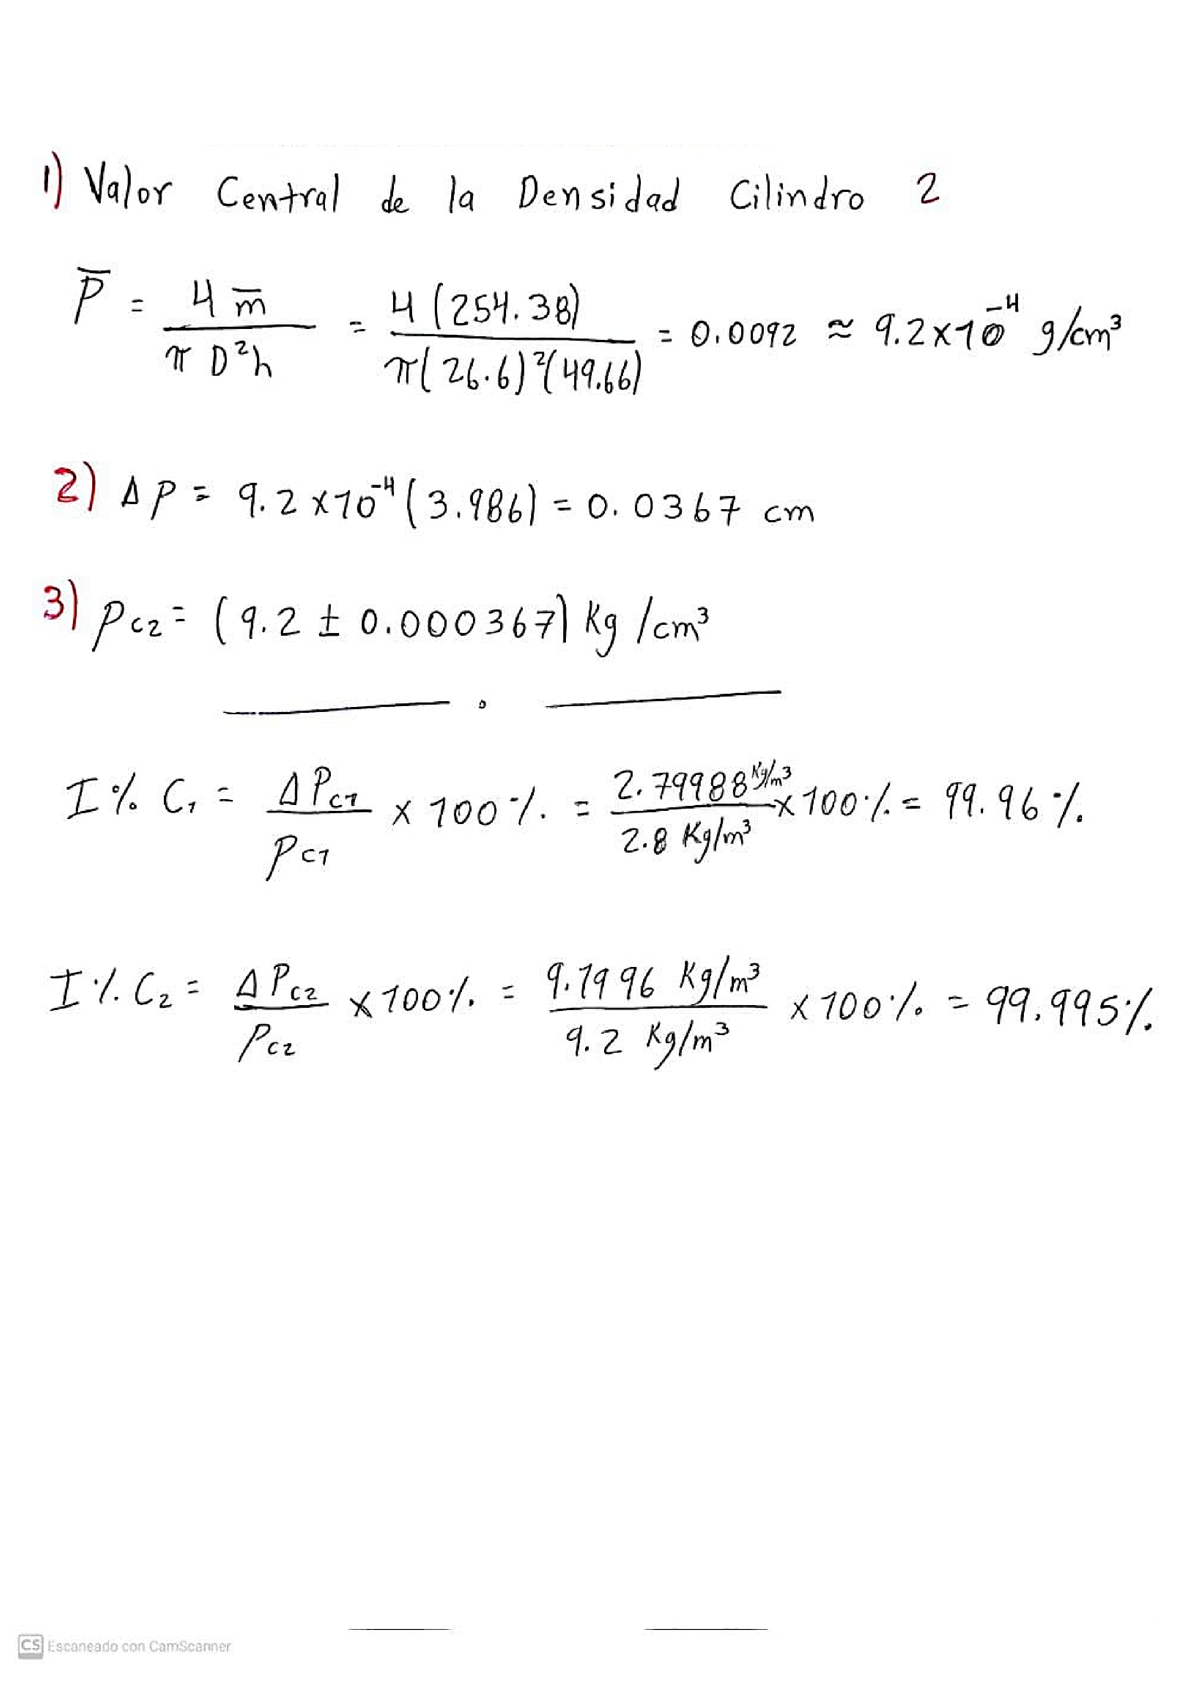 1) Valor Central de la Densidad Cilindro 2
P̅ = 4 m̅ / π D²h = 4 (254.38) / π(26.6)²(49.66) = 0.0092 ≈ 9.2x10⁻⁴ g/cm³
2) Δ P = 9.2 x10⁻⁴ (3.986) = 0.0367 cm
3) Pc2 = (9.2 ± 0.000367) Kg /cm³
I % C₁ = ΔPc1 / Pc1 x 100 % = 2.79988 Kg/m³ / 2.8 Kg/m³ x 100 % = 99.96 %
I % C₂ = ΔPc2 / Pc2 x 100 % = 9.1996 Kg/m³ / 9.2 Kg/m³ x 100 % = 99.995 %
CS Escaneado con CamScanner